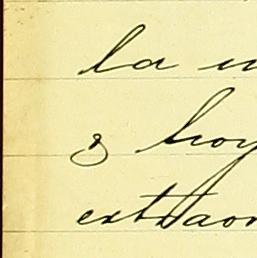 la
y hoy
extraor